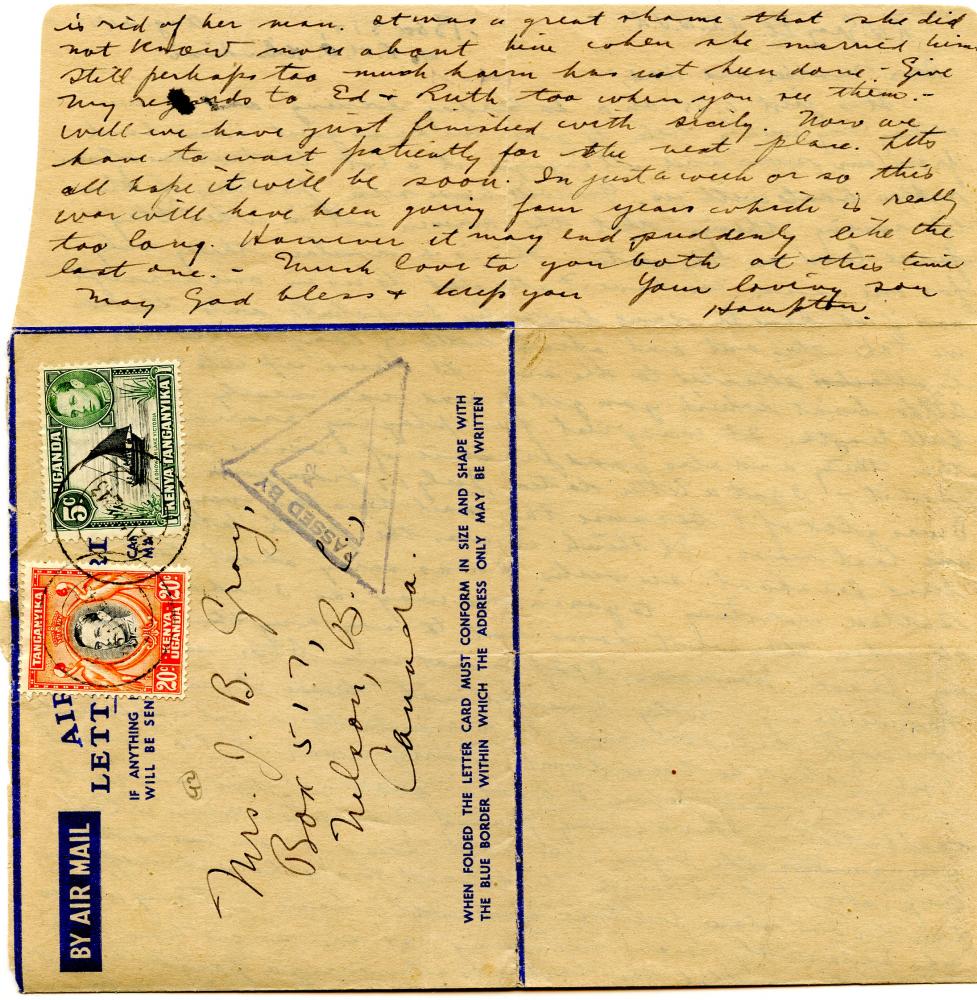 is rid of her man. It was a great shame that she did
not know more about him when she married him
Still perhaps too much harm has not been done. - Give
my regards to Ed + Ruth too when you see them. -
Well we have just finished with Sicily. Now we
have to wait patiently for the next place. Lets
all hope it will be soon. In just a week or so this
war will have been going four years which is really
too long. However it may end suddenly like the
last one. - Much love to you both at this time
May God bless + keep you Your loving son
Hampton.
UGANDA
KENYA TANGANYIKA
5c
TANGANYIKA
KENYA
UGANDA
20c
20c
PASSED BY
AIR
LETT
IF ANYTHING
WILL BE SEN
BY AIR MAIL
Mrs. J. B. Gray,
Box 517,
Nelson, B. C.,
Canada.
WHEN FOLDED THE LETTER CARD MUST CONFORM IN SIZE AND SHAPE WITH
THE BLUE BORDER WITHIN WHICH THE ADDRESS ONLY MAY BE WRITTEN